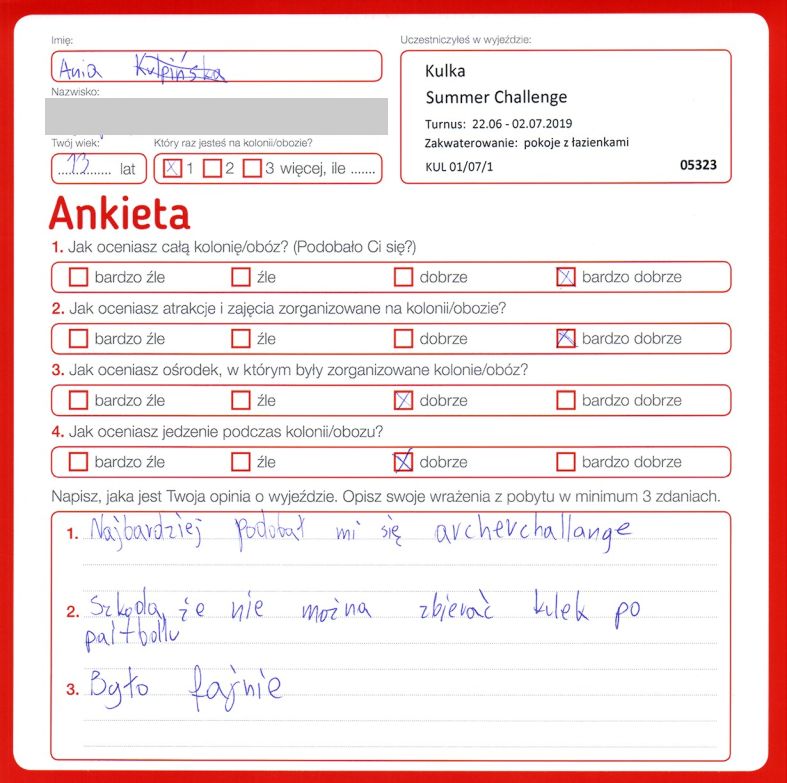 Imię:
Ania Kulpińska
Nazwisko:
Twój wiek:
13 lat
Który raz jesteś na kolonii/obozie?
1 2 3 więcej, ile .......
Uczestniczyłeś w wyjeździe:
Kulka
Summer Challenge
Turnus: 22.06 - 02.07.2019
Zakwaterowanie: pokoje z łazienkami
KUL 01/07/1 05323
Ankieta
1. Jak oceniasz całą kolonię/obóz? (Podobało Ci się?)
bardzo źle źle dobrze bardzo dobrze
2. Jak oceniasz atrakcje i zajęcia zorganizowane na kolonii/obozie?
bardzo źle źle dobrze bardzo dobrze
3. Jak oceniasz ośrodek, w którym były zorganizowane kolonie/obóz?
bardzo źle źle dobrze bardzo dobrze
4. Jak oceniasz jedzenie podczas kolonii/obozu?
bardzo źle źle dobrze bardzo dobrze
Napisz, jaka jest Twoja opinia o wyjeździe. Opisz swoje wrażenia z pobytu w minimum 3 zdaniach.
1. Najbardziej podobał mi się archerchallange
2. Szkoda, że nie można zbierać kulek po
paitbollu
3. Było fajnie